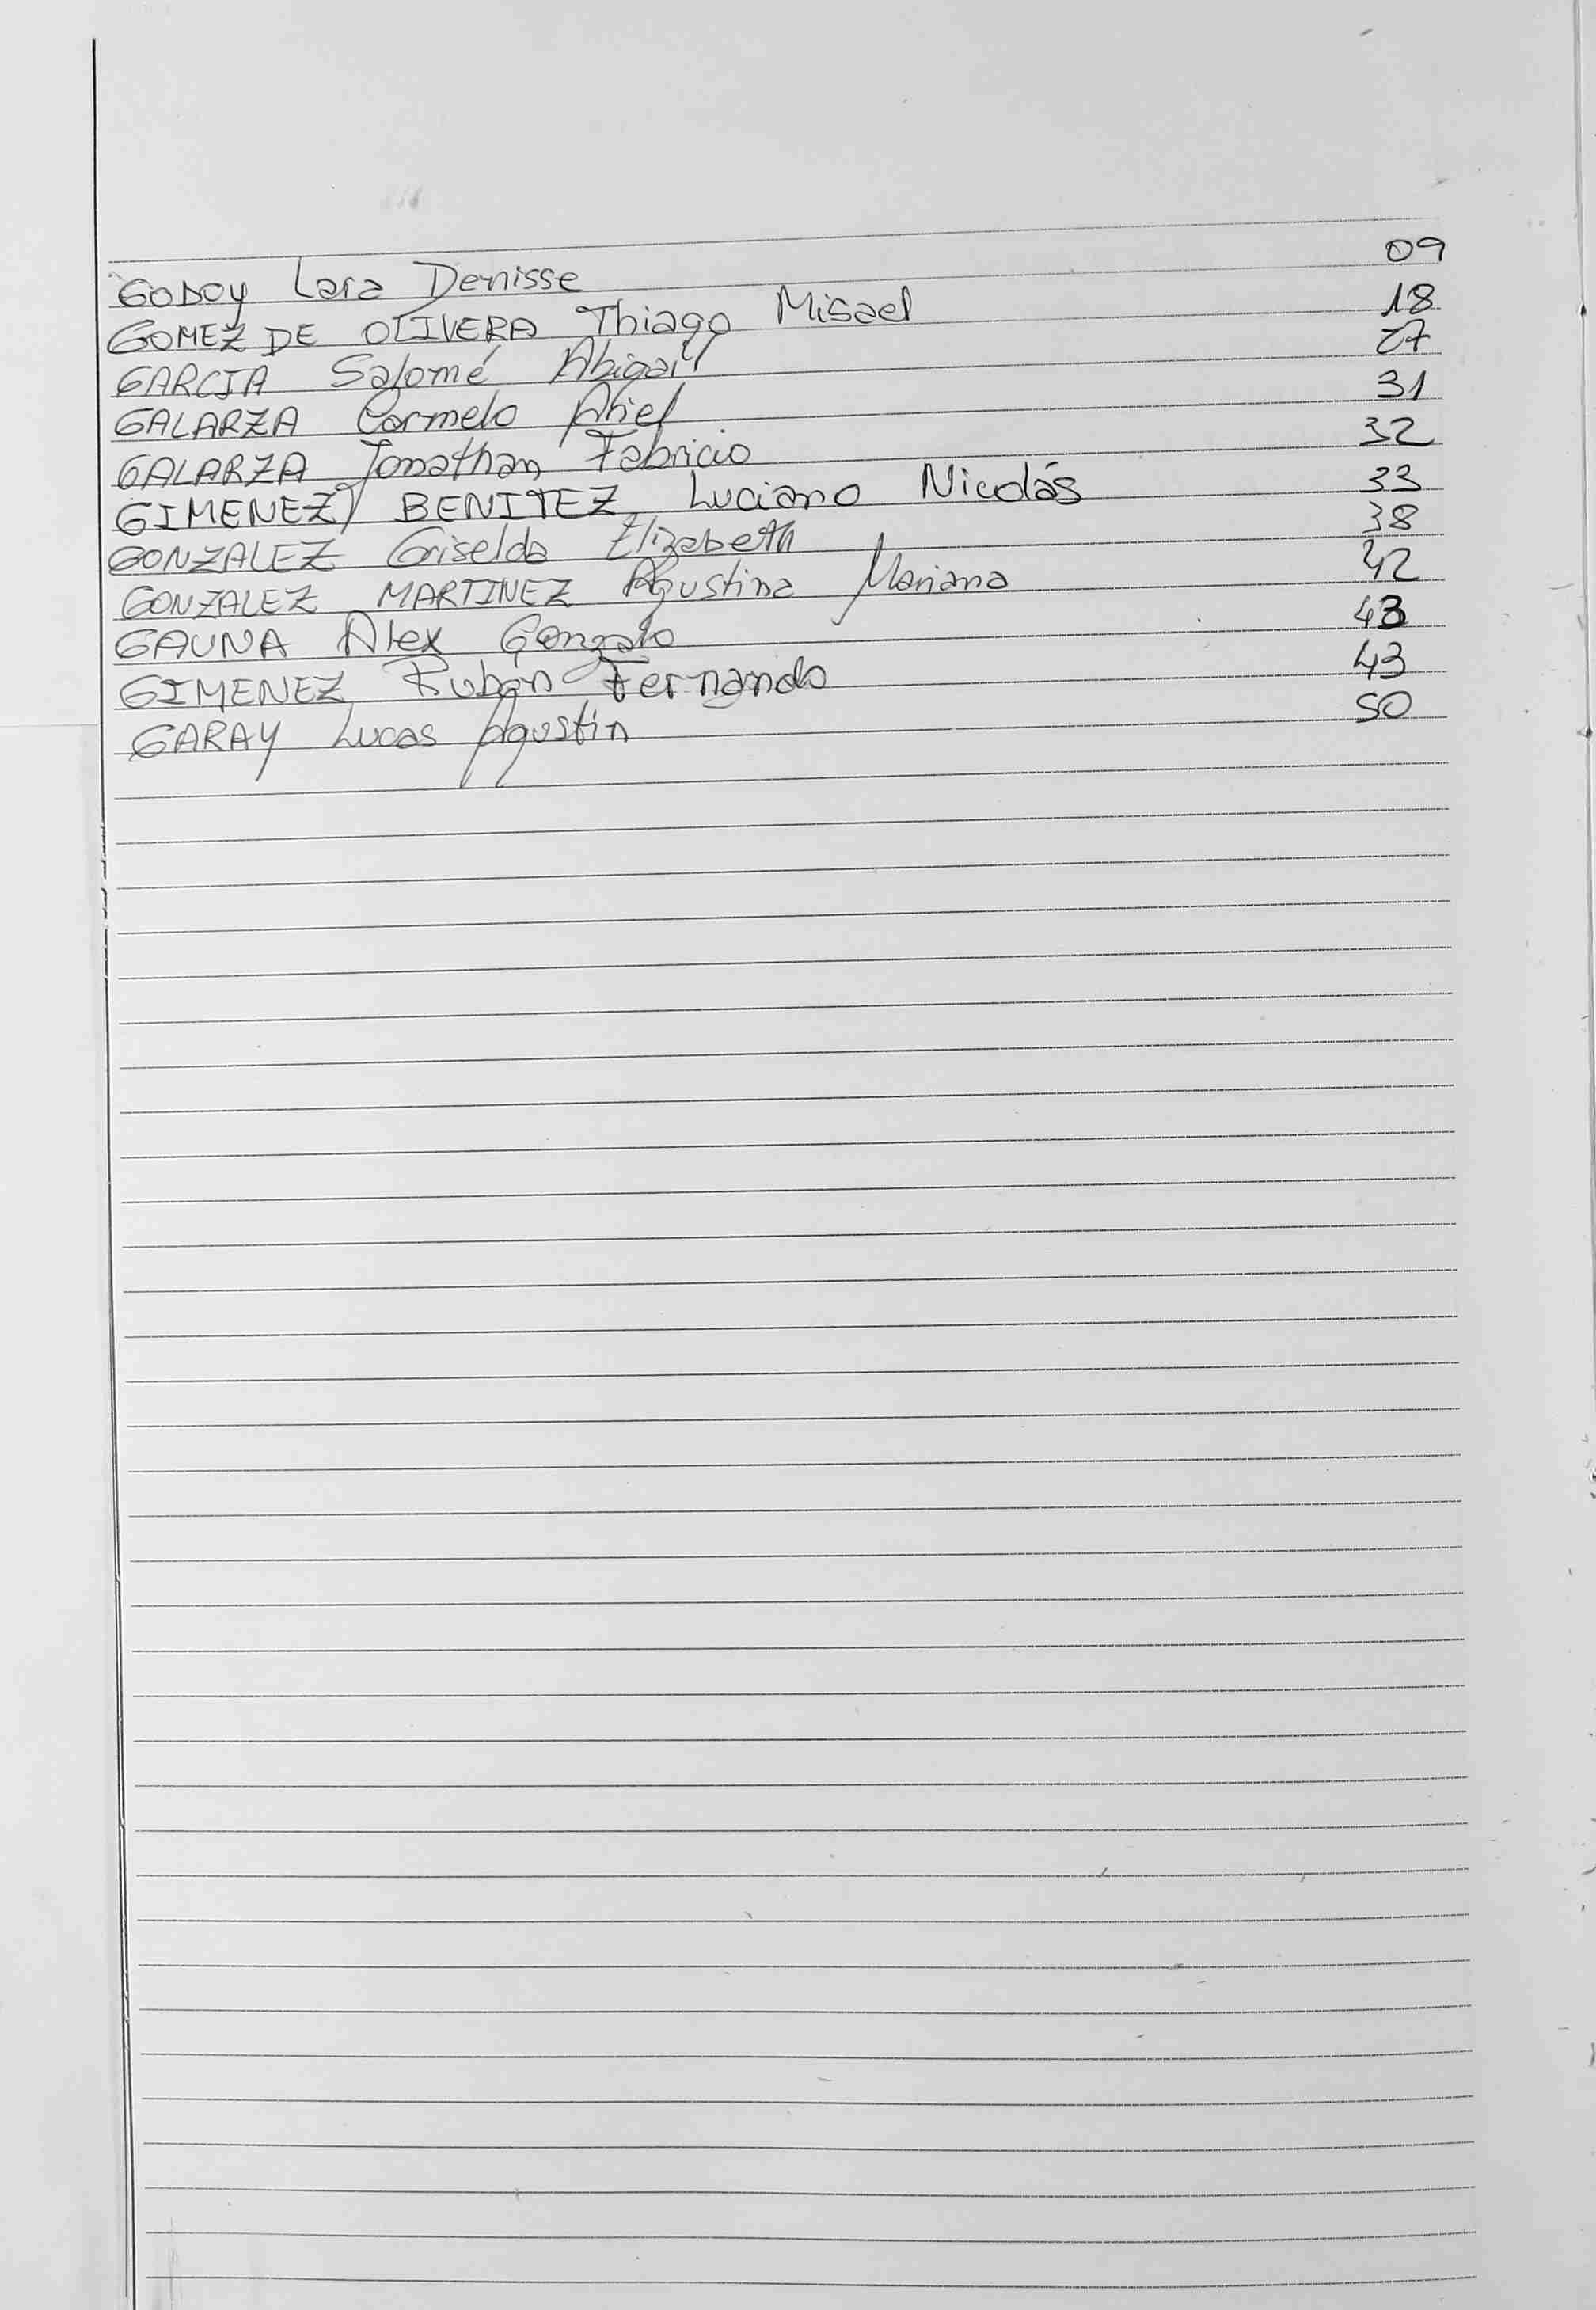 GODOY Lara Denisse 09
GOMEZ DE OLIVERA Thiago Misael 18
GARCIA Salomé Abigail 27
GALARZA Carmelo Ariel 31
GALARZA Jonathan Fabricio 32
GIMENEZ BENITEZ Luciano Nicolás 33
GONZALEZ Griselda Elizabeth 38
GONZALEZ MARTINEZ Agustina Mariana 42
GAUNA Alex Gonzalo 43
GIMENEZ Ruben Fernando 43
GARAY Lucas Agustin 50